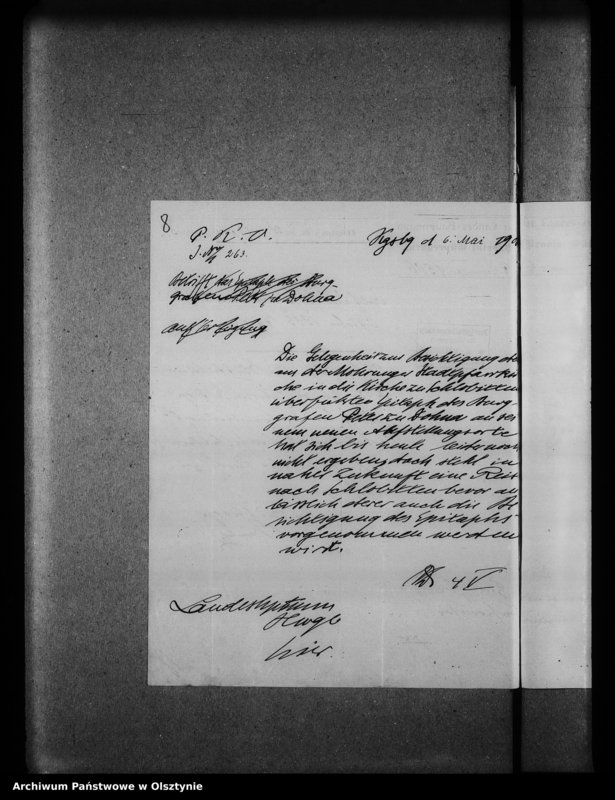 8
P. K. O.
J. № 263.
Kgsbg d 6. Mai 190
betrifft das Epitaph des Burg-
grafen zu Dohna
Die Gelegenheit zur Besichtigung des
aus der Mohrunger Stadtpfarrkir
che in die Kirche zu Schlobitten
überführten Epitaph des Burg
grafen Peter zu Dohna an sei
nem neuen Aufstellungsorte
hat sich bis heute leider noch
nicht ergeben, doch steht in
naher Zukunft eine Reise
nach Schlobitten bevor an
lässlich derer auch die Be
sichtigung des Epitaphs
vorgenommen werden
wird.
4 V
Landeshptmnn
hier.
Archiwum Państwowe w Olsztynie